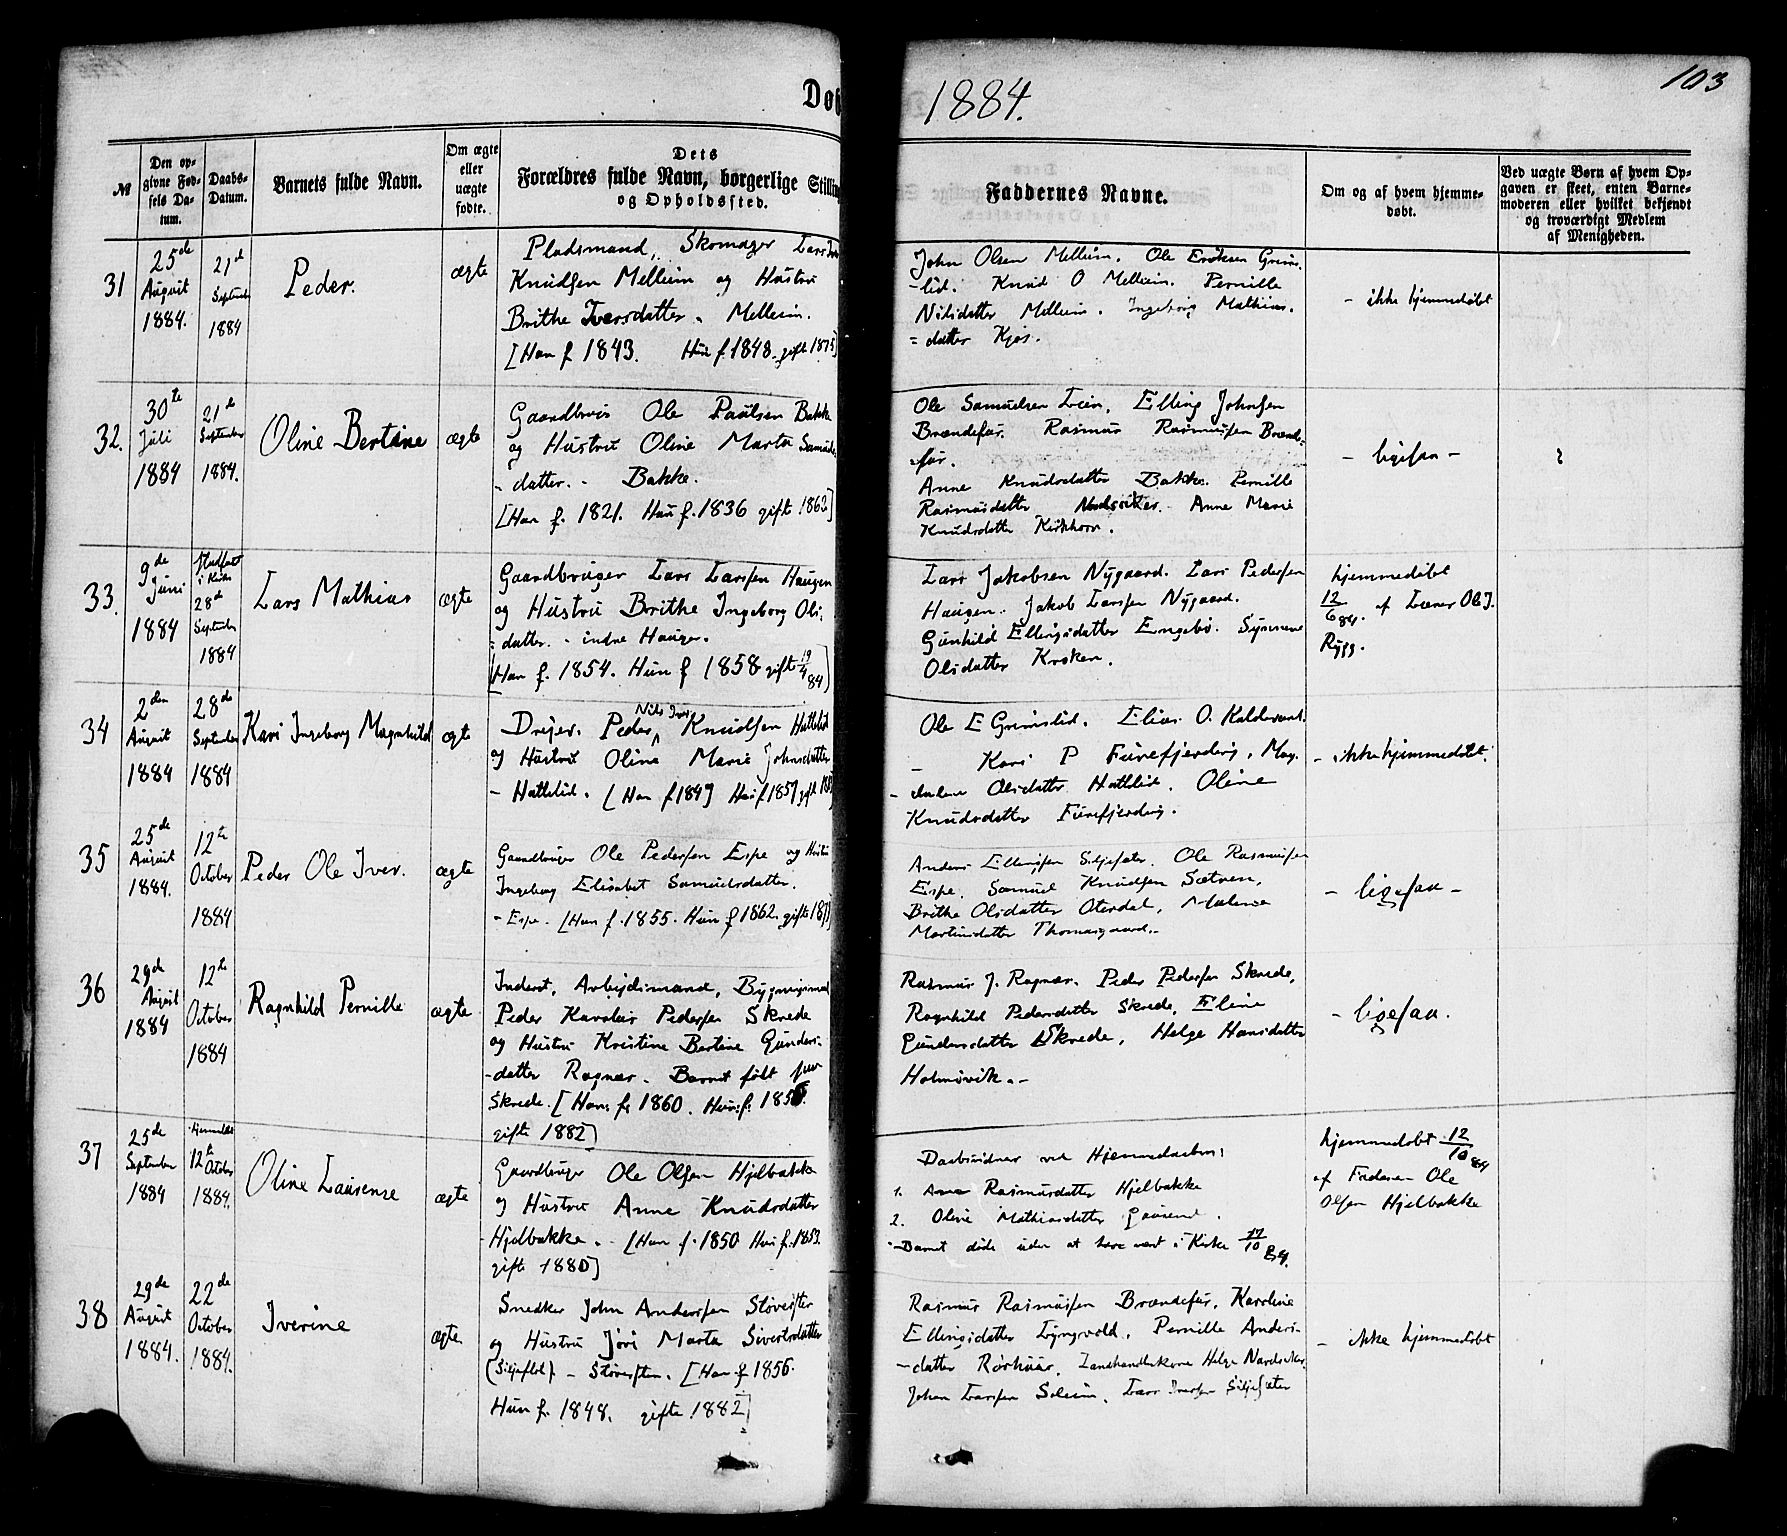 103
Døb
1884.
№
Den op-
givne Fød-
sels Da-
tum.
Daabs-
Datum.
Barnets fulde Navn.
Om ægte
eller
uægte
fødte.
Dets
Forældres fulde Navn, borgerlige Stilling
og Opholdssted.
Faddernes Navne.
Om og af hvem hjemme-
døbt.
Ved uægte Børn af hvem Op-
gaven er skeet, enten Barne-
moderen eller hvilket bekjendt
og troværdigt Medlem
af Menigheden.
31
25de
August
1884.
21de
September
1884
Peder.
ægte
Pladsmand, Skomager Lars
Knudsen Melheim og Hustru
Brithe Iversdatter. Melheim.
[Han f 1843. Hun f. 1848. gift 1875]
John Olsen Melheim. Ole Eriksen Grims-
-lid. Knud O Melheim. Pernille
Nilsdatter Melheim. Ingeborg Mathias-
= datter Kjøs.
- ikke hjemmedøbt
32.
30te
Juli
1884
21de
September
1884.
Oline Bertine
ægte
Gaardbrug Ole Paulsen Bakke
og Hustru Oline Marta Samuels-
- datter. - Bakke.
[Han f. 1821. Hun f. 1836 gift 1862]
Ole Samuelsen Lien, Elling Johnsen
Brændefur. Rasmus Rasmussen Brænde-
-fur.
Anne Knudsdatter Bakke. Pernille
Rasmusdatter Nordsiker. Anne Marie
Knudsdatter Kirkhorn.
- ligesaa -
33.
9de
Juni
1884
Stadfæst
i Kirke
28de
September
1884
Lars Mathias
ægte
Gaardbruger Lars Larssen Haugen
og Hustru Brithe Ingeborg Ols-
= datter. - indre Haugen.
[Han f. 1854. Hun f 1858 gift 19/4 84]
Lars Jakobsen Nygaard. Lars Pedersen
Haugen. Jakob Larssen Nygaard.
Gunhild Ellingsdatter Engebø. Synneve
Olsdatter Kroken.
hjemmedøbt
12/6 84. af Lærer Ole J.
Rygg.
34
2den
August
1884
28de
September
1884
Kari Ingeborg Magnhild
ægte
Nils Iver
Drejer. Peder Knudsen Hatlelid
og Hustru Oline Marie Johnsdatter
- Hatlelid. [Han f 1849 Hun f 1857 gift
Ole E Grimslid. Elias O. Kaldevand.
- Kari P Furefjerding, Mag-
- dalene Olsdatter Hatlelid. Oline
Knudsdatter Furefjerding.
- ikke hjemmedøbt.
35
25de
August
1884.
12te
October
1884
Peder Ole Iver.
ægte
Gaardbruger Ole Pedersen Espe og Hustru
Ingeborg Elisabet Samuelsdatter.
- Espe. [Han f. 1855. Hun f 1862. gifte
Anders Ellingsen Siljesæter. Ole Rasmussen
Espe. Samuel Knudsen Sætren,
Brithe Olsdatter Oterdal, Malene
Martinsdatter Thomasgaard.
- ligesaa -
36
29de
August
1884
12te
October
1884
Ragnhild Pernille
ægte
Inderst, Arbejdsmand, Bygningsmand
Peder Karolus Pedersen Skrede
og Hustru Kristine Bertine Gunders-
-datter Ragnær. Barnet født paa
Skrede. [Han f. 1860. Hun f. 1856.
gifte 1882]
Rasmus J. Ragnær. Peder Pedersen Skrede,
Ragnhild Pedersdatter Skrede, Eline
Gundersdatter Skrede, Helge Hansdatter
Holmøvik. -
- ligesaa.
37
25de
September
1884
hjemmedøbt
12te October
1884.
Oline Laurense
ægte
Gaardbruger Ole Olsen Hjelbakke
og Hustru Anne Knudsdatter
Hjelbakke. - [Han f. 1850 Hun f. 1853.
gifte 1880]
Daabsvidner ved Hjemmedaaben:
1. Ane Rasmusdatter Hjelbakke
2. Oline Mathiasdatter
- Barnet døde uden at have vært i Kirke 17/10 84.
hjemmedøbt 12/10 84
af Faderen Ole
Olsen Hjelbakke
38
29de
August
1884.
22de
October
1884.
Iverine
ægte
Snedker John Anderssen Støversten
og Hustru Jøri Marta Sivertsdatter
(Siljeflot). - Støversten. [Han f 1856.
Hun f. 1848. gifte 1882]
Rasmus Rasmussen Brændefur. Karoline
Ellingsdatter Lyngvold. Pernille Anders-
- datter Rørhuus. Landhandlerkone Helge Nordsiker.
Johan Larssen Soleim. Lars Iversen Siljesæter
- ikke hjemmedøbt